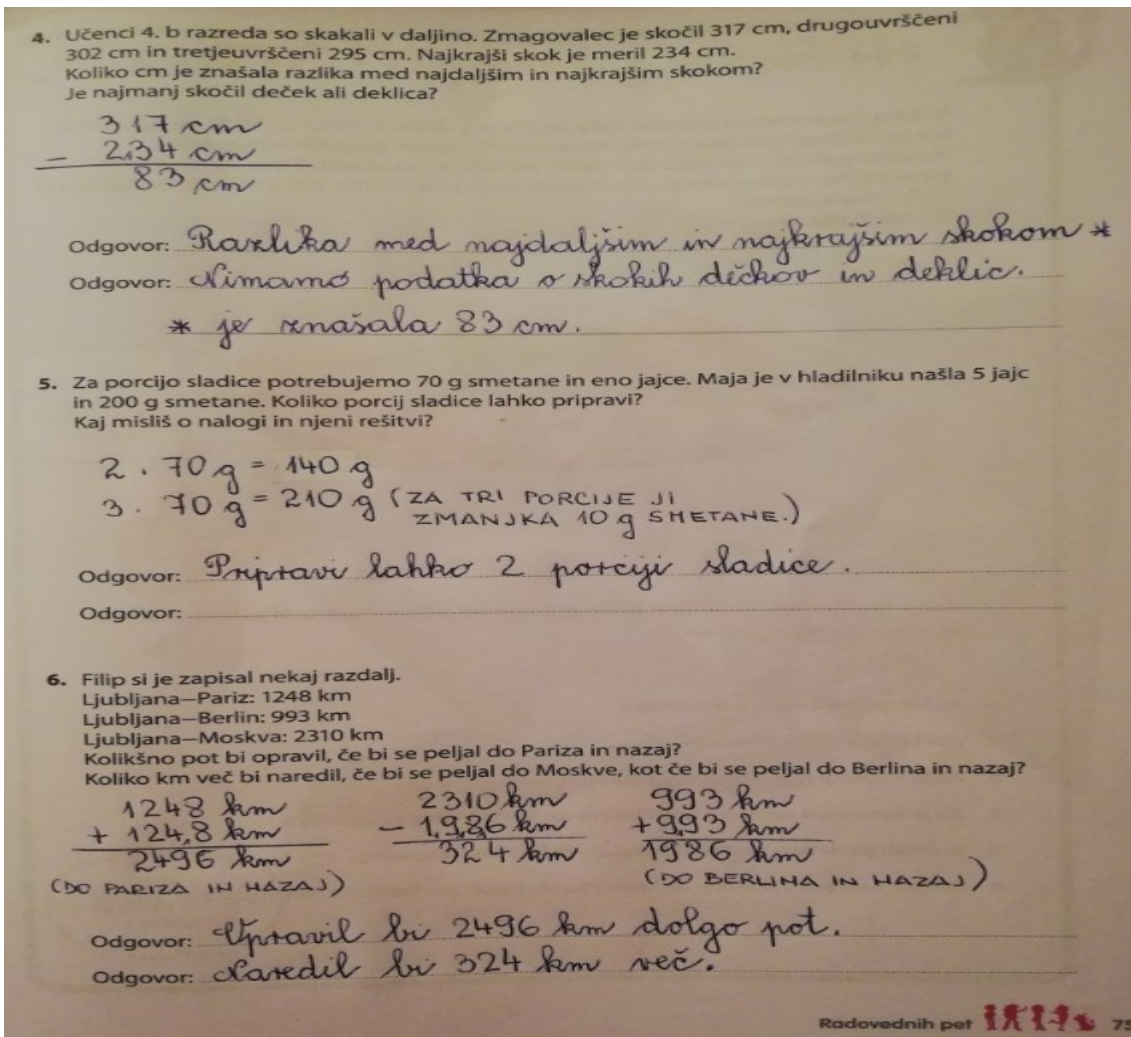 4. Učenci 4. b razreda so skakali v daljino. Zmagovalec je skočil 317 cm, drugouvrščeni
302 cm in tretjeuvrščeni 295 cm. Najkrajši skok je meril 234 cm.
Koliko cm je znašala razlika med najdaljšim in najkrajšim skokom?
Je najmanj skočil deček ali deklica?
317 cm
- 234 cm
83 cm
Odgovor: Razlika med najdaljšim in najkrajšim skokom *
Odgovor: Nimamo podatka o skokih dečkov in deklic.
* je znašala 83 cm.
5. Za porcijo sladice potrebujemo 70 g smetane in eno jajce. Maja je v hladilniku našla 5 jajc
in 200 g smetane. Koliko porcij sladice lahko pripravi?
Kaj misliš o nalogi in njeni rešitvi?
2 . 70 g = 140 g
3 . 70 g = 210 g (ZA TRI PORCIJE JI
ZMANJKA 10 g SMETANE.)
Odgovor: Pripravi lahko 2 porciji sladice.
Odgovor:
6. Filip si je zapisal nekaj razdalj.
Ljubljana–Pariz: 1248 km
Ljubljana–Berlin: 993 km
Ljubljana–Moskva: 2310 km
Kolikšno pot bi opravil, če bi se peljal do Pariza in nazaj?
Koliko km več bi naredil, če bi se peljal do Moskve, kot če bi se peljal do Berlina in nazaj?
1248 km 2310 km 993 km
+ 1248 km - 1986 km + 993 km
2496 km 324 km 1986 km
(DO PARIZA IN NAZAJ) (DO BERLINA IN NAZAJ)
Odgovor: Opravil bi 2496 km dolgo pot.
Odgovor: Naredil bi 324 km več.
Radovednih pet 75